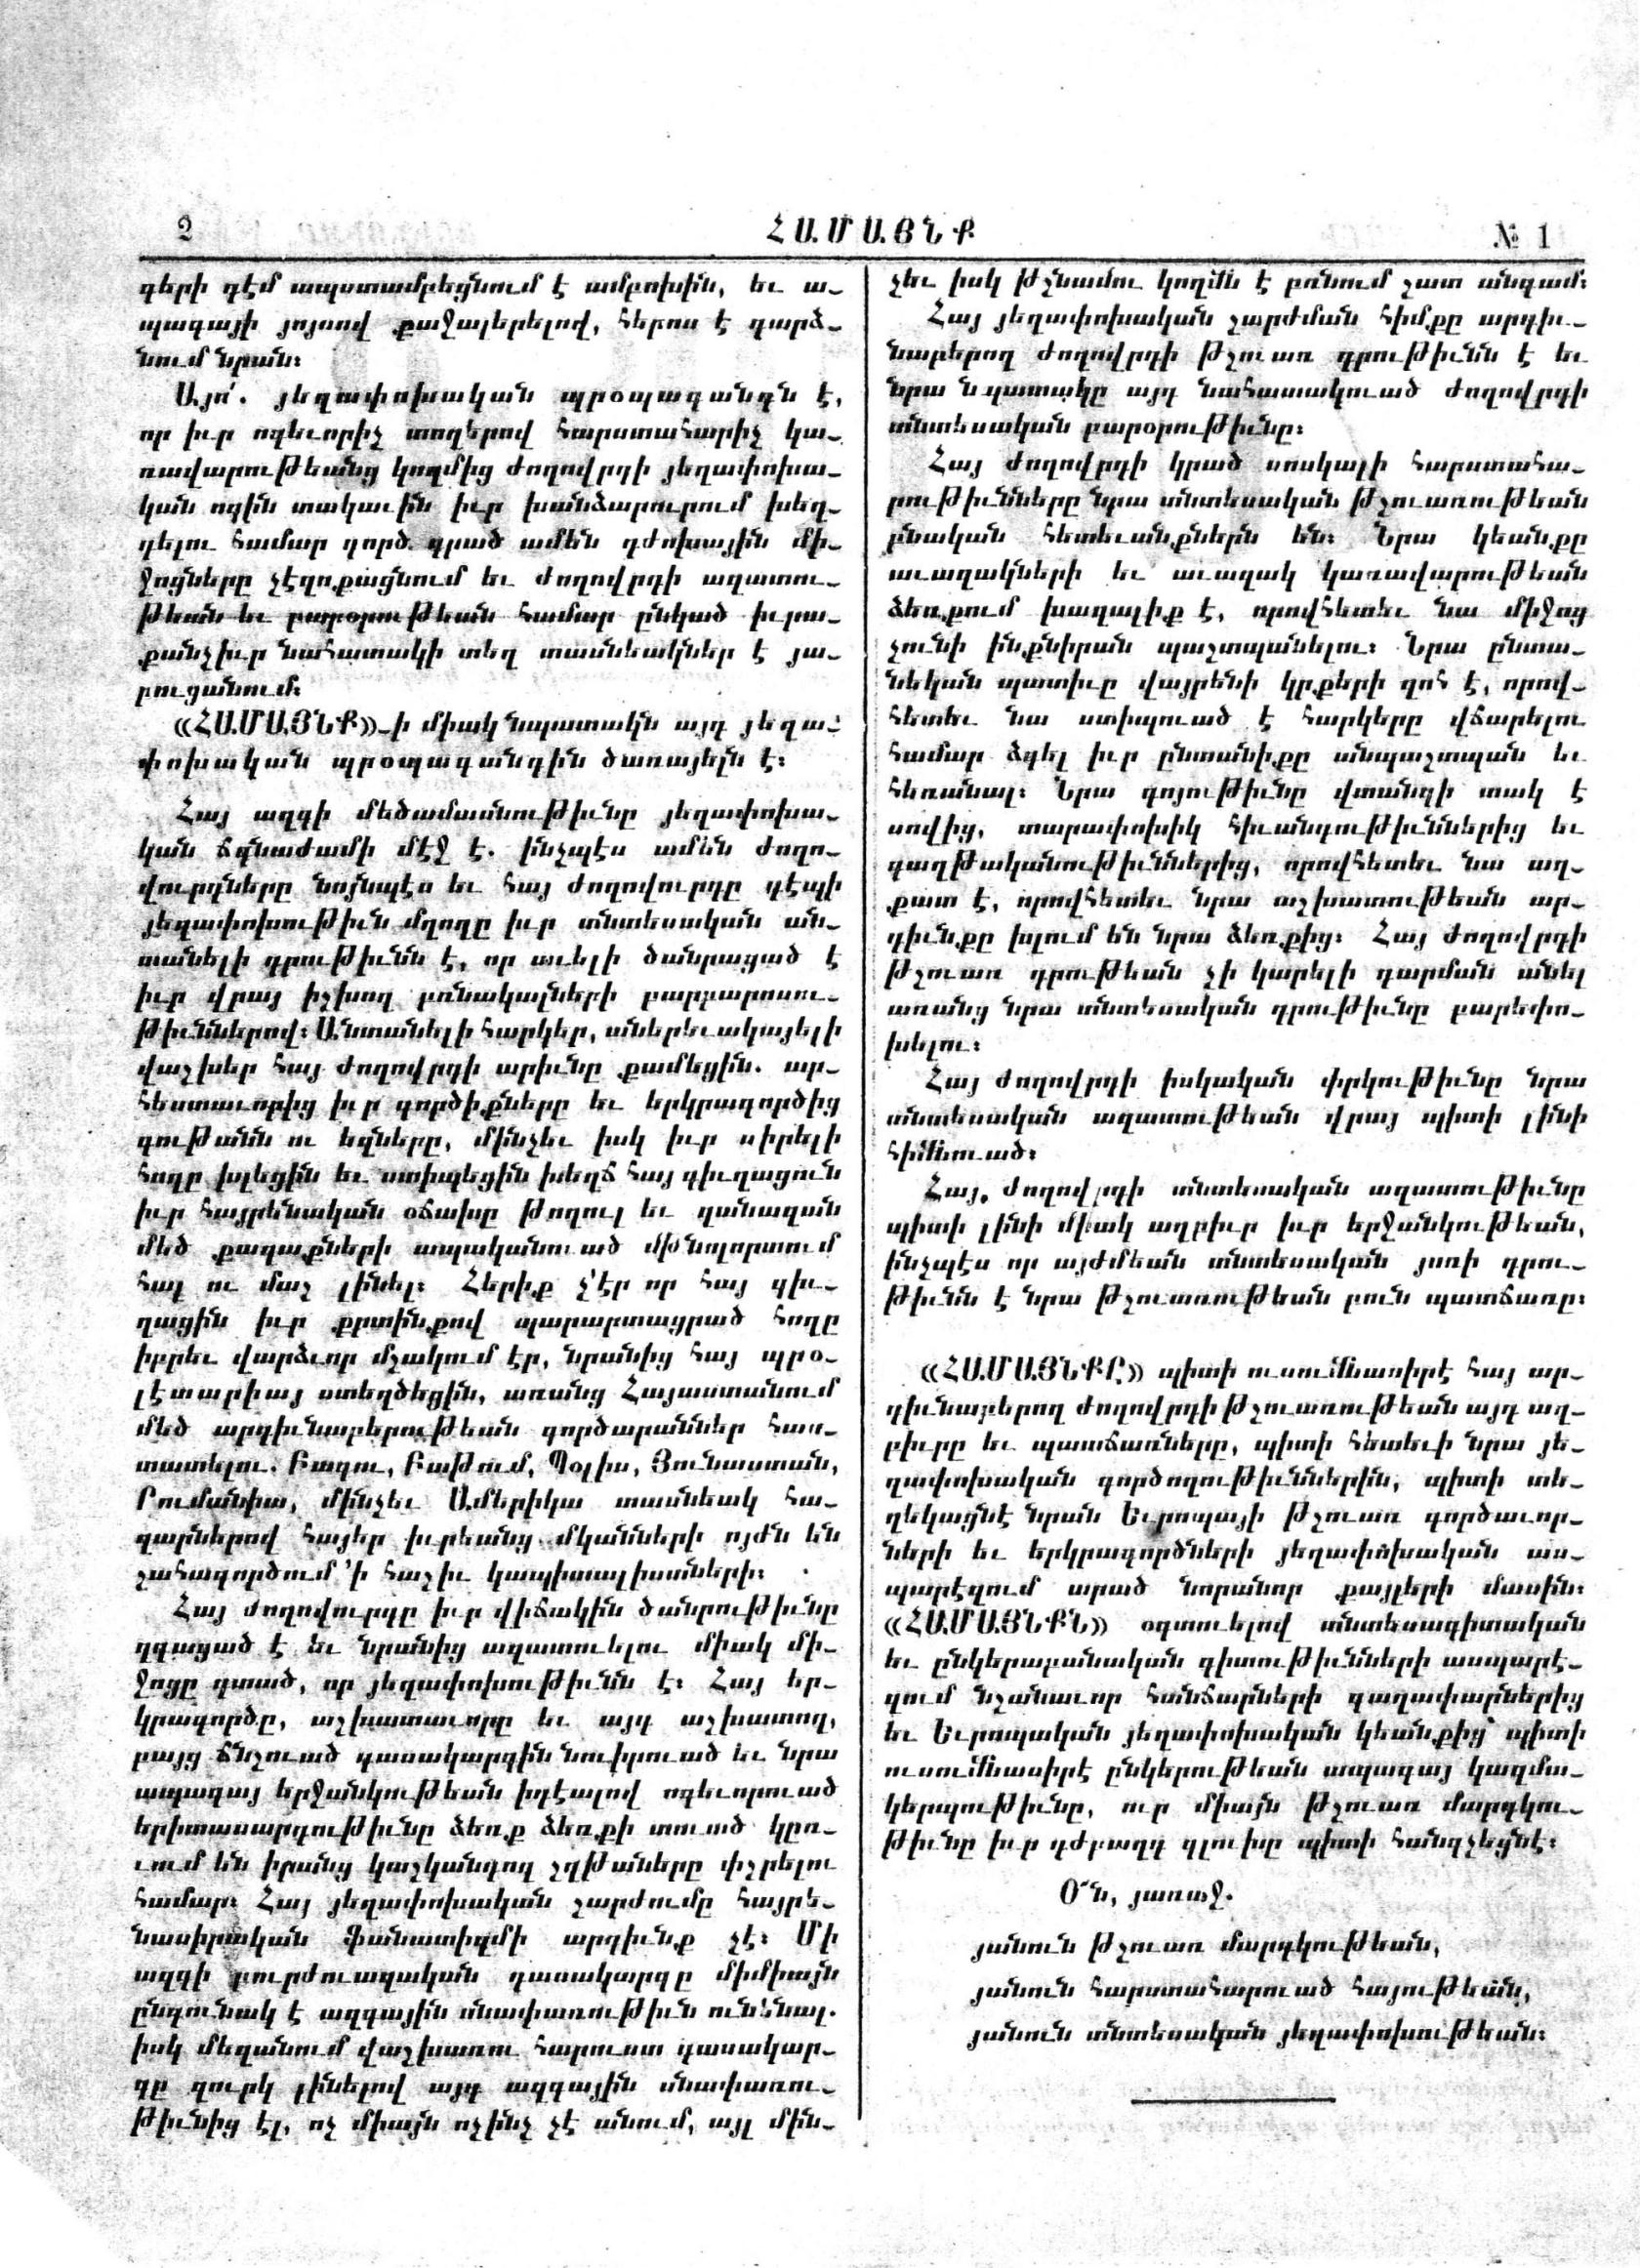 2
ՀԱՄԱՅՆՔ
№ 1
գերի դէմ ապստամբեցնում է ամբոխին, եւ ա-
պագայի յոյսով քաջալերելով, հերոս է դարձ-
նում նրան:
Այո՛. յեղափոխական պրօպագանդն է,
որ իւր ոգեւորիչ տողերով հարստահարիչ կա-
ռավարութեանց կողմից ժողովրդի յեղափոխա-
կան ոգին տակաւին իւր խանձարուրում խեղ-
դելու համար գործ դրած ամեն դժոխային մի-
ջոցները չէզոքացնում եւ ժողովրդի ազատու-
թեան եւ բարօրութեան համար ընկած իւրա-
քանչիւր նահատակի տեղ տասնեակներ է յա-
րուցանում:
«ՀԱՄԱՅՆՔ»-ի միակ նպատակն այդ յեղա-
փոխական պրօպագանդին ծառայելն է:
Հայ ազգի մեծամասնութիւնը յեղափոխա-
կան ճգնաժամի մէջ է. ինչպէս ամեն ժողո-
վուրդները նոյնպէս եւ հայ ժողովուրդը դէպի
յեղափոխութիւն մղողը իւր տնտեսական ան-
տանելի դրութիւնն է, որ աւելի ծանրացած է
իւր վրայ իշխող բռնակալների բարբարոսու-
թիւններով: Անտանելի հարկեր, աներեւակայելի
վաշխեր հայ ժողովրդի արիւնը քամեցին. ար-
հեստաւորից իւր գործիքները եւ երկրագործից
գութանն ու եզները, մինչեւ իսկ իւր սիրելի
հողը խլեցին եւ ստիպեցին խեղճ հայ գիւղացուն
իւր հայրենական օճախը թողուլ եւ զանազան
մեծ քաղաքների ապականուած մթնոլորտում
հալ ու մաշ լինել: Հերիք չ՚էր որ հայ գիւ-
ղացին իւր քրտինքով պարարտացրած հողը
իբրեւ վարձւոր մշակում էր, նրանից հայ պրօ-
լէտարիայ ստեղծեցին, առանց Հայաստանում
մեծ արդիւնաբերութեան գործարաններ հաս-
տատելու. Բագու, Բաթում, Պօլիս, Յունաստան,
Րումանիա, մինչեւ Ամերիկա տասնեակ հա-
զարներով հայեր իւրեանց մկանների ոյժն են
շահագործում ՚ի հաշիւ կապիտալիստների:
Հայ ժողովուրդը իւր վիճակին ծանրութիւնը
զգացած է եւ նրանից ազատուելու միակ մի-
ջոցը գտած, որ յեղափոխութիւնն է: Հայ եր-
կրագործը, աշխատաւորը եւ այդ աշխատող,
բայց ճնշուած դասակարգին նուիրուած եւ նրա
ապագայ երջանկութեան իդէալով ոգեւորուած
երիտասարդութիւնը ձեռք ձեռքի տուած կըռ-
ւում են իրանց կաշկանդող շղթաները փշրելու
համար: Հայ յեղափոխական շարժումը հայրե-
նասիրական Ֆանատիզմի արդիւնք չէ: Մի
ազգի բուրժուազական դասակարգը միմիայն
ընդունակ է ազգային սնափառութիւն ունենալ.
իսկ մեզանում վաշխառու հարուստ դասակար-
գը զուրկ լինելով այդ ազգային սնափառու-
թիւնից էլ, ոչ միայն ոչինչ չէ անում, այլ մին-
չեւ իսկ թշնամու կողմն է բռնում շատ անգամ:
Հայ յեղափոխական շարժման հիմքը արդիւ-
նաբերող ժողովրդի թշուառ դրութիւնն է եւ
նրա նպատակը այդ նահատակուած ժողովրդի
տնտեսական բարօրութիւնը:
Հայ ժողովրդի կրած սոսկալի հարստահա-
րութիւնները նրա տնտեսական թշուառութեան
բնական հետեւանքներն են: Նրա կեանքը
աւազակների եւ աւազակ կառավարութեան
ձեռքում խաղալիք է, որովհետեւ նա միջոց
չունի ինքնիրան պաշտպանելու: Նրա ընտա-
նեկան պատիւը վայրենի կրքերի զոհ է, որով-
հետեւ նա ստիպուած է հարկերը վճարելու
համար ձգել իւր ընտանիքը անպաշտպան եւ
հեռանալ: Նրա գոյութիւնը վտանգի տակ է
սովից, տարափոխիկ հիւանդութիւններից եւ
գաղթականութիւններից, որովհետեւ նա աղ-
քատ է, որովհետեւ նրա աշխատութեան ար-
դիւնքը խլում են նրա ձեռքից: Հայ ժողովրդի
թշուառ դրութեան չի կարելի դարման անել
առանց նրա տնտեսական դրութիւնը բարեփո-
խելու:
Հայ ժողովրդի իսկական փրկութիւնը նրա
տնտեսական ազատութեան վրայ պիտի լինի
հիմնուած:
Հայ ժողովրդի տնտեսական ազատութիւնը
պիտի լինի միակ աղբիւր իւր երջանկութեան,
ինչպէս որ այժմեան տնտեսական յոռի դրու-
թիւնն է նրա թշուառութեան բուն պատճառը:
«ՀԱՄԱՅՆՔԸ» պիտի ուսումնասիրէ հայ ար-
դիւնաբերող ժողովրդի թշուառութեան այդ աղ-
բիւրը եւ պատճառները, պիտի հետեւի նրա յե-
ղափոխական գործողութիւններին, պիտի տե-
ղեկացնէ նրան Եւրոպայի թշուառ գործաւոր-
ների եւ երկրագործների յեղափոխական աս-
պարէզում արած նորանոր քայլերի մասին:
«ՀԱՄԱՅՆՔՆ» օգտուելով տնտեսագիտական
եւ ընկերաբանական գիտութիւնների ասպարէ-
զում նշանաւոր հանճարների գաղափարներից
եւ Եւրոպական յեղափոխական կեանքից՝ պիտի
ուսումնասիրէ ընկերութեան ապագայ կազմա-
կերպութիւնը, ուր միայն թշուառ մարդկու-
թիւնը իւր դժբաղդ գլուխը պիտի հանգչեցնէ:
Օ՜ն, յառաջ.
յանուն թշուառ մարդկութեան,
յանուն հարստահարուած հայութեան,
յանուն տնտեսական յեղափոխութեան: